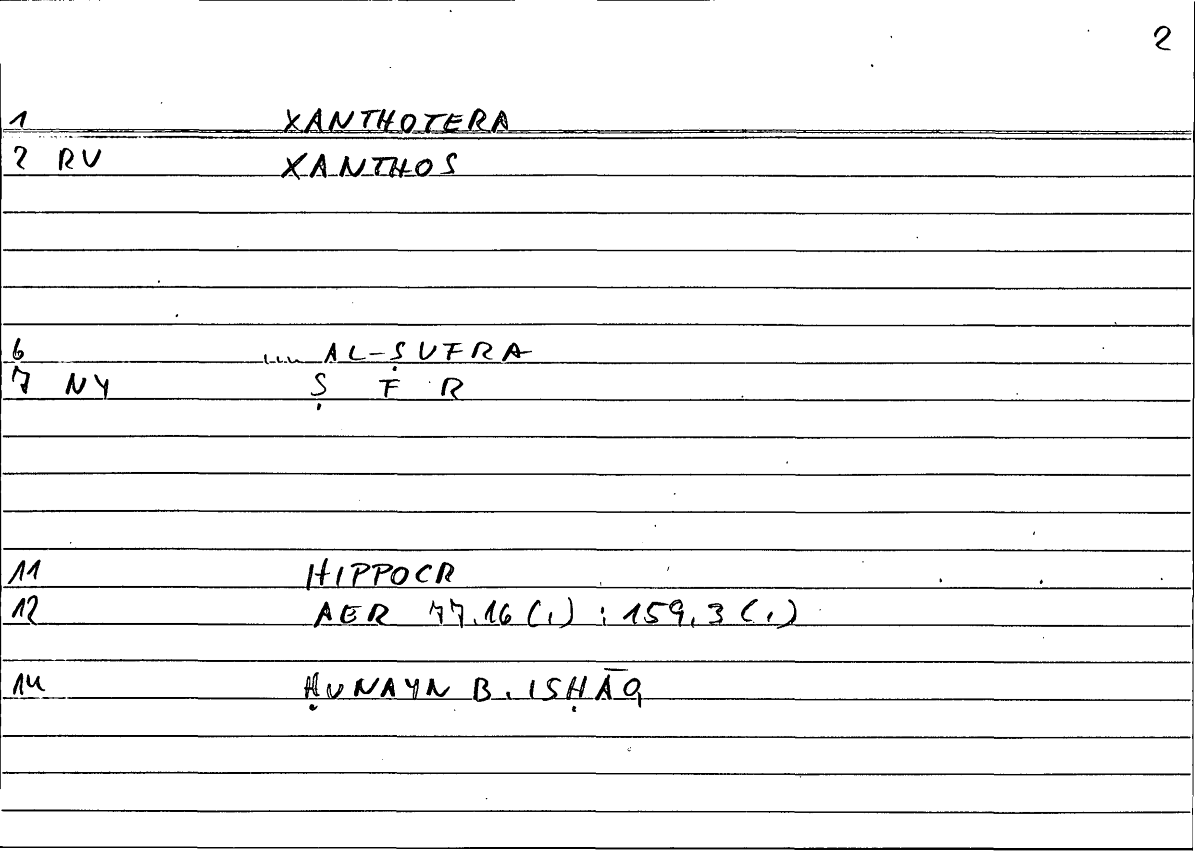 2
1 XANTHOTERA
2 RV XANTHOS
6 .... AL-ṢUFRA
7 NY Ṣ F R
11 HIPPOCR
12 AER 77.16 (,) : 159,3 (,)
14 ḤUNAYN B. ISḤĀQ